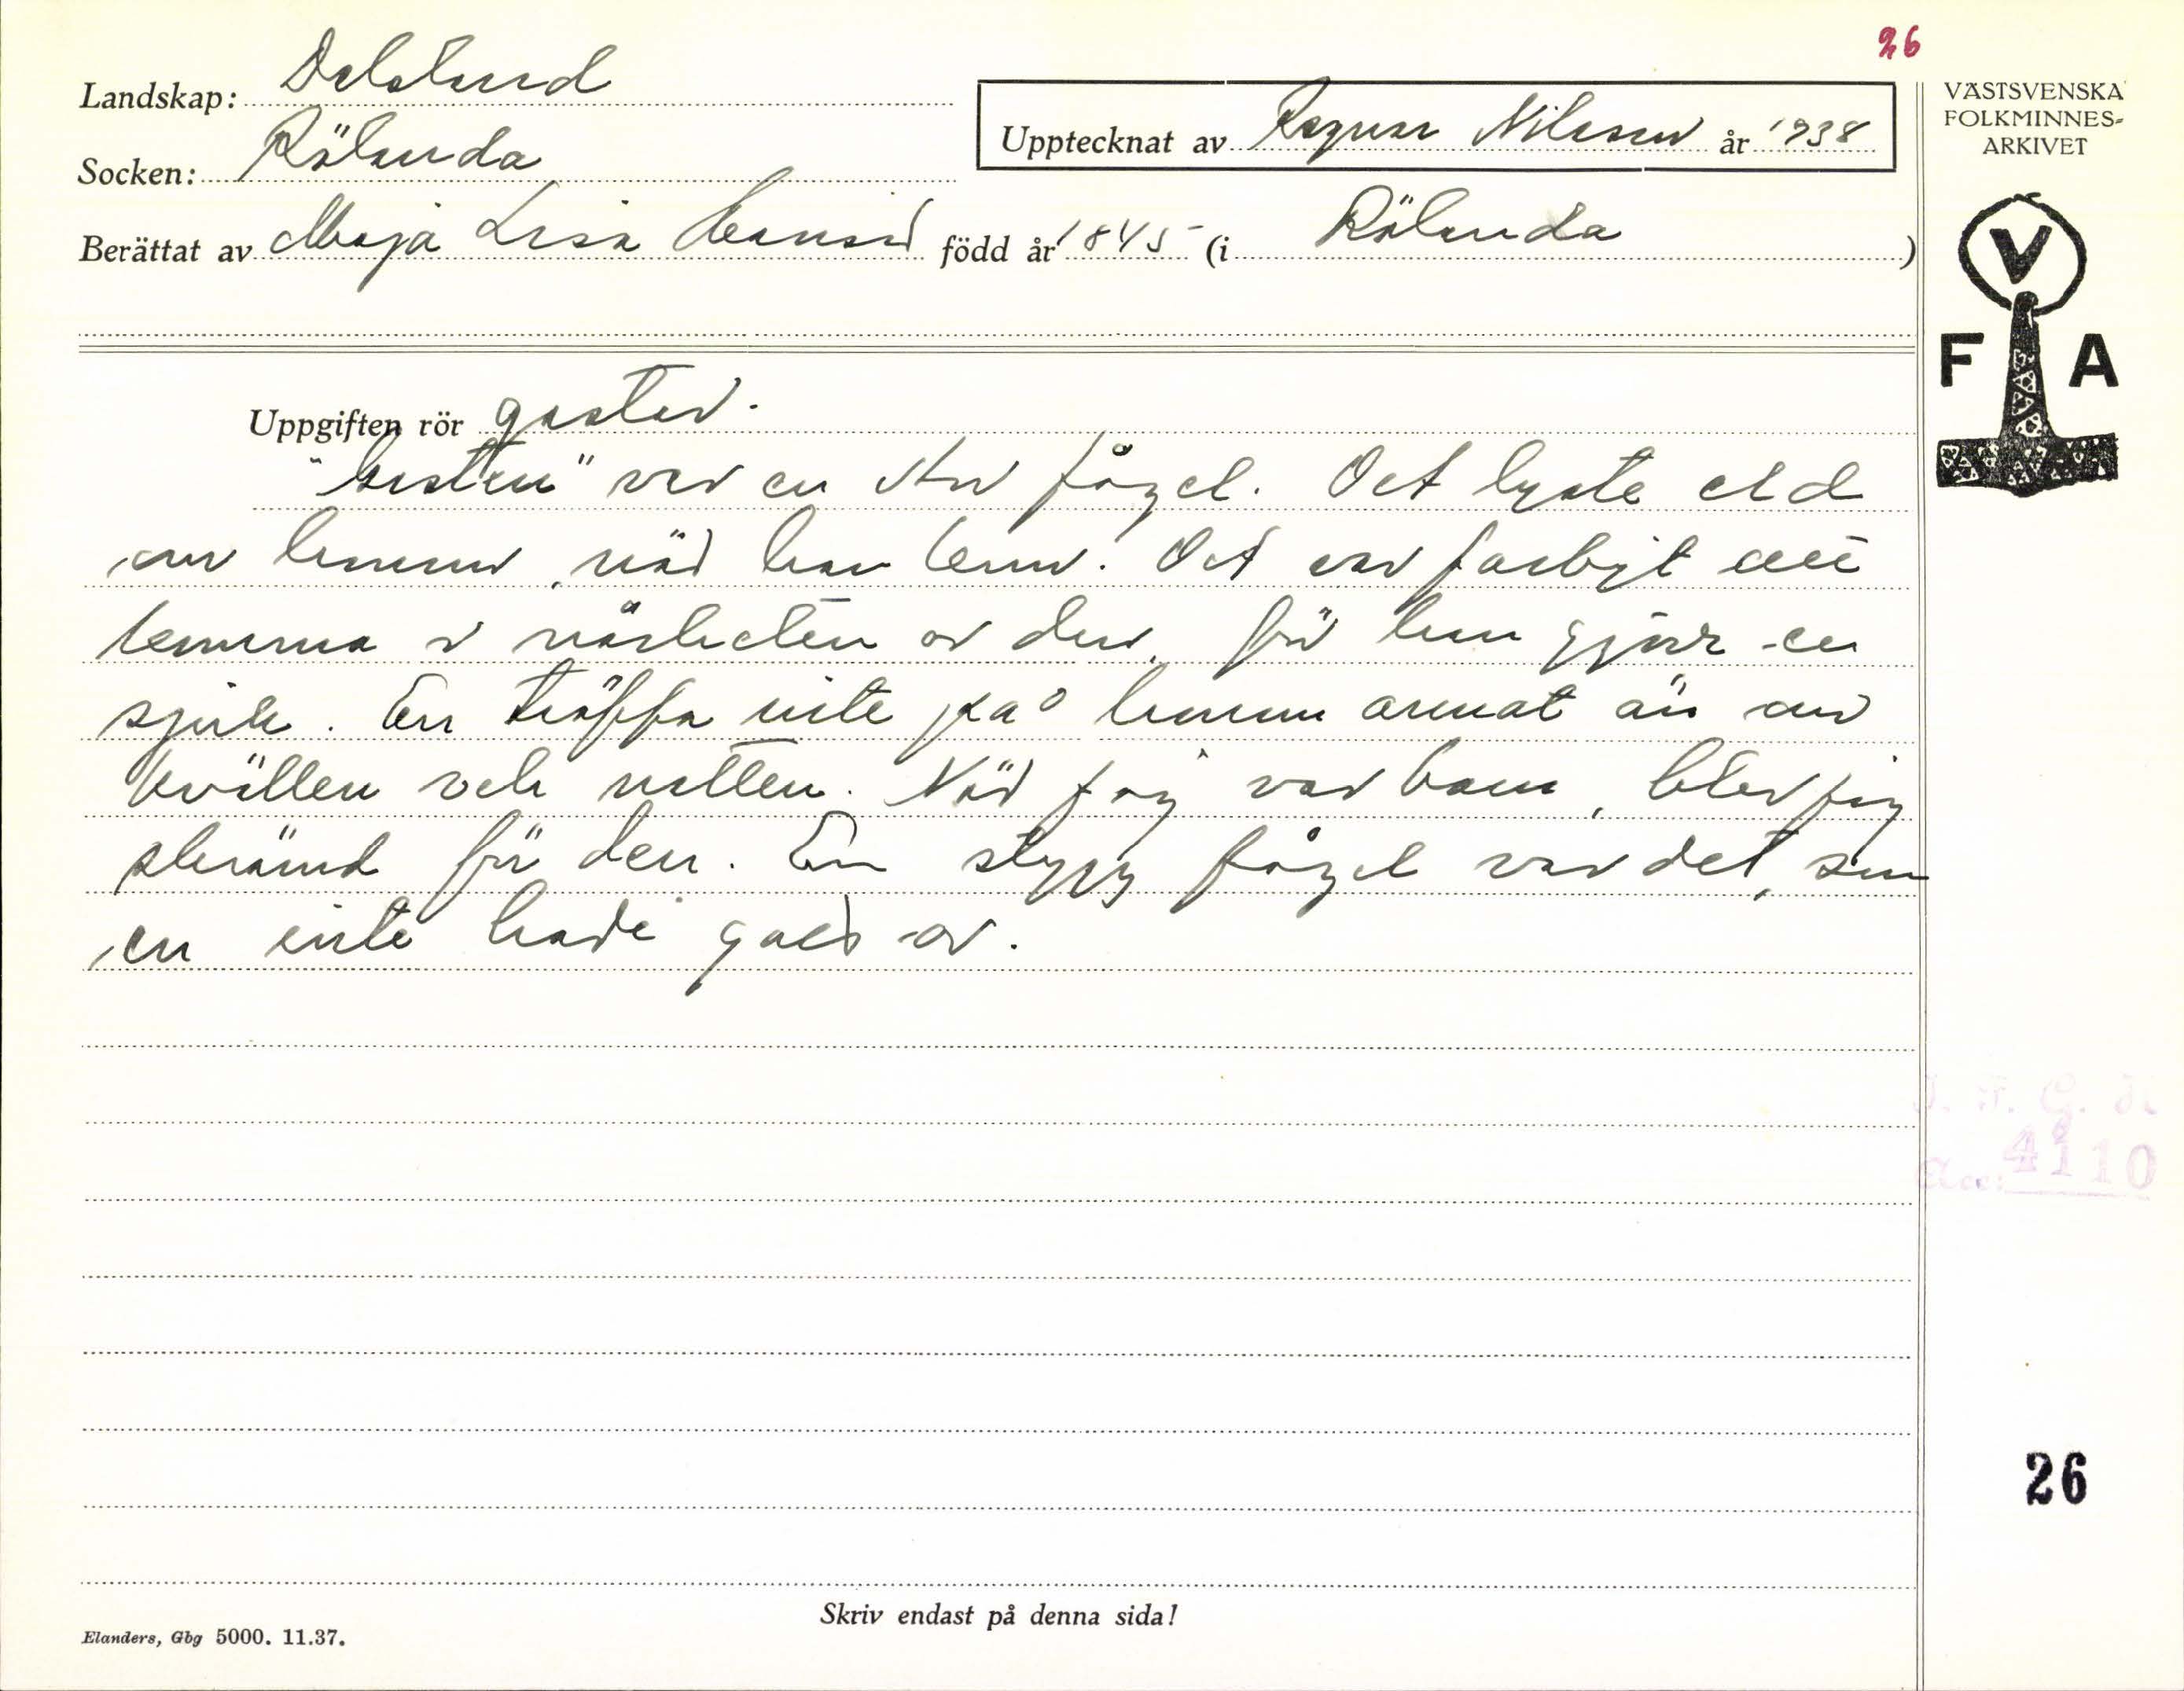 26
Landskap: Dalsland
Socken: Rölanda
Upptecknat av Ragnar Nilsson år 1938
Berättat av Maja Lisa född år 1845 (i Rölanda)
VÄSTSVENSKA
FOLKMINNES-
ARKIVET
V
F A
Uppgiften rör gasten.
"Gasten" var en stor fågel. Det lyste eld
om honom, när han kom. Det var farligt att
komma i närheten av den, för han gjorr en
sjuk. En träffa inte på honom annat än om
kvällen och natten. När jag var barn, blev jag
skrämd för den. En stygg fågel var det, som
en inte hade gott av.
Acc. 4110
26
Skriv endast på denna sida!
Elanders, Gbg 5000. 11.37.